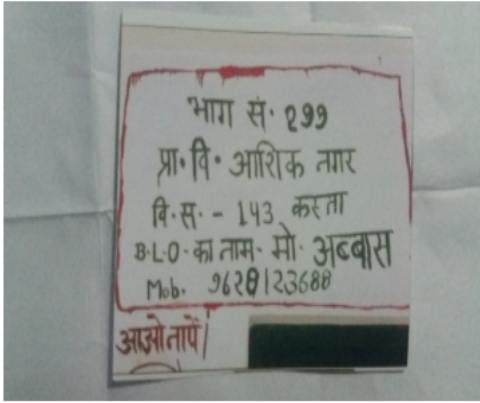 भाग सं. 299
प्रा. वि. आशिक नगर
वि. स. - 143 कस्ता
B.L.O. का नाम. मो. अब्बास
Mob. 9628123688